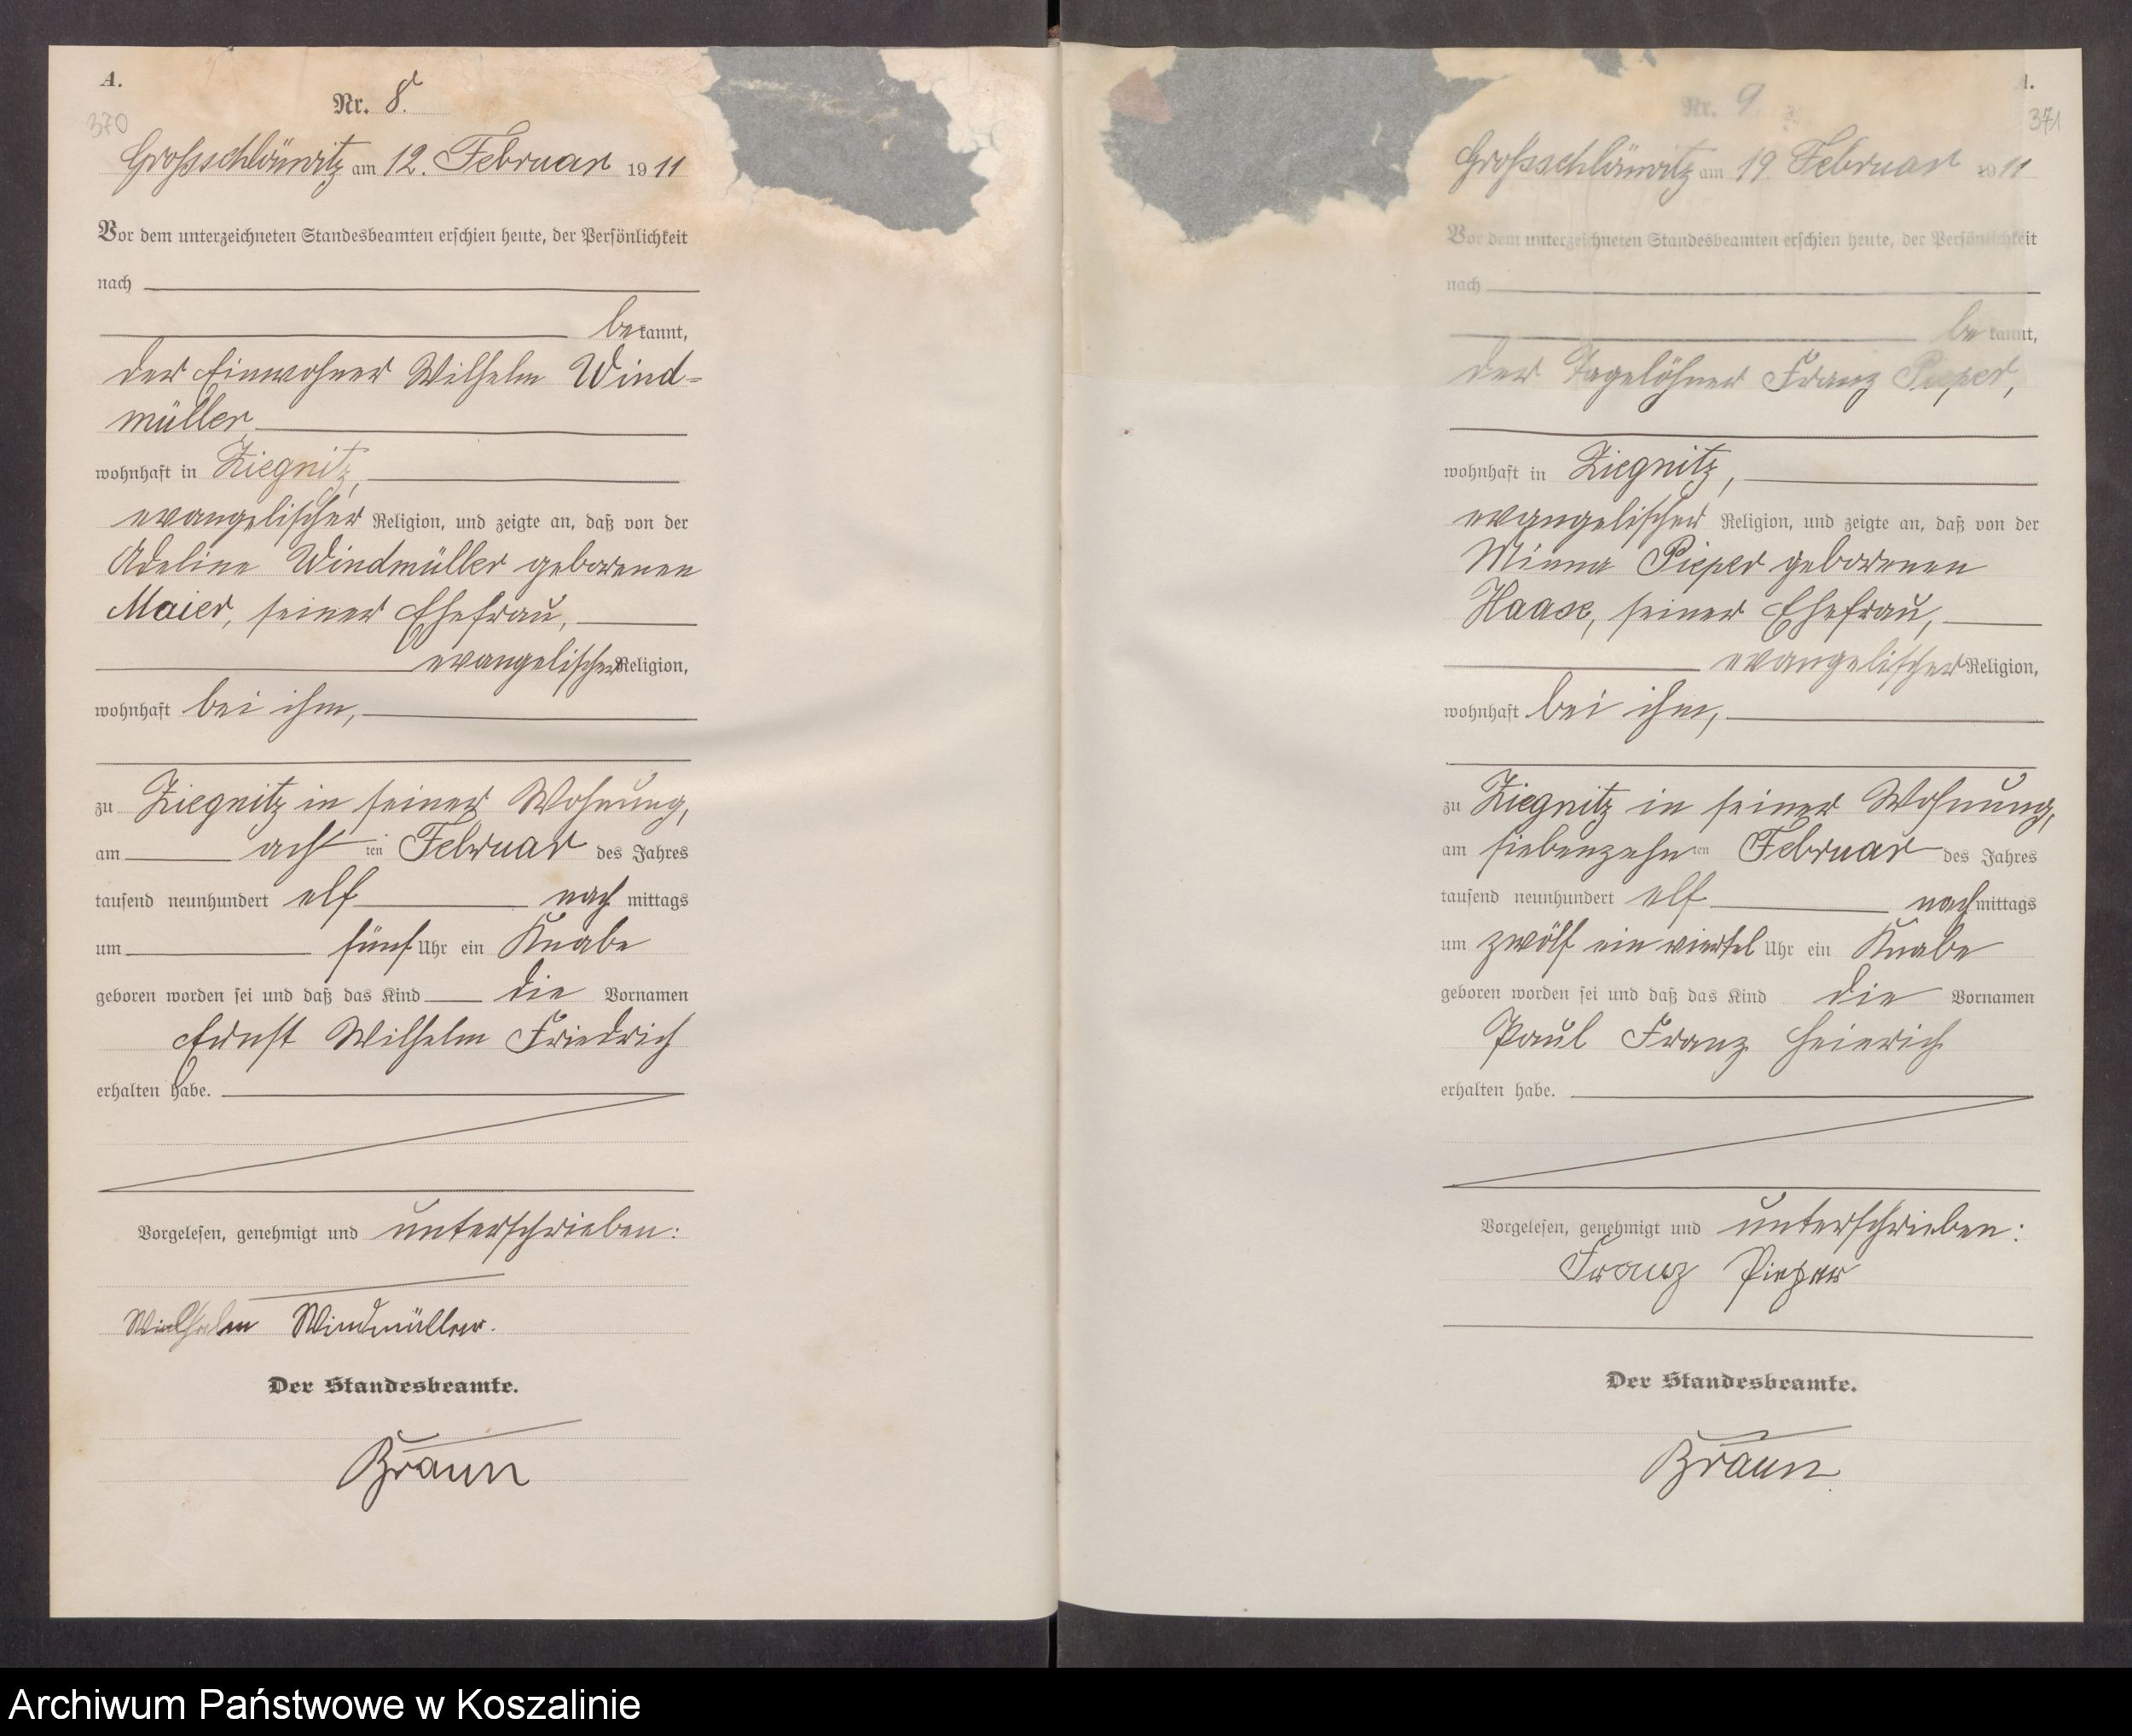 A.
370
Nr. 8.
Grossschlönwitz am 12. Februar 1911
Vor dem unterzeichneten Standesbeamten erschien heute, der Persönlichkeit
nach
bekannt,
der Einwohner Wilhelm Wind-
müller
wohnhaft in Ziegnitz,
evangelischer Religion, und zeigte an, daß von der
Adeline Windmüller geborenen
Maier, seiner Ehefrau,
evangelischer Religion,
wohnhaft bei ihm,
zu Ziegnitz in seiner Wohnung,
am acht ten Februar des Jahres
tausend neunhundert elf nach mittags
um fünf Uhr ein Knabe
geboren worden sei und daß das Kind die Vornamen
Ernst Wilhelm Friedrich
erhalten habe.
Vorgelesen, genehmigt und unterschrieben:
Wilhelm Windmüller.
Der Standesbeamte.
Braun
A.
371
Nr. 9.
Grossschlönwitz am 19. Februar 1911
Vor dem unterzeichneten Standesbeamten erschien heute, der Persönlichkeit
nach
be kannt,
der Tagelöhner Franz Pieper,
wohnhaft in Ziegnitz,
evangelischer Religion, und zeigte an, daß von der
Minna Pieper geborenen
Haase, seiner Ehefrau,
evangelischer Religion,
wohnhaft bei ihm,
zu Ziegnitz in seiner Wohnung,
am siebenzehn ten Februar des Jahres
tausend neunhundert elf nachmittags
um zwölf ein viertel Uhr ein Knabe
geboren worden sei und daß das Kind die Vornamen
Paul Franz Heinrich
erhalten habe.
Vorgelesen, genehmigt und unterschrieben:
Franz Pieper
Der Standesbeamte.
Braun
Archiwum Państwowe w Koszalinie